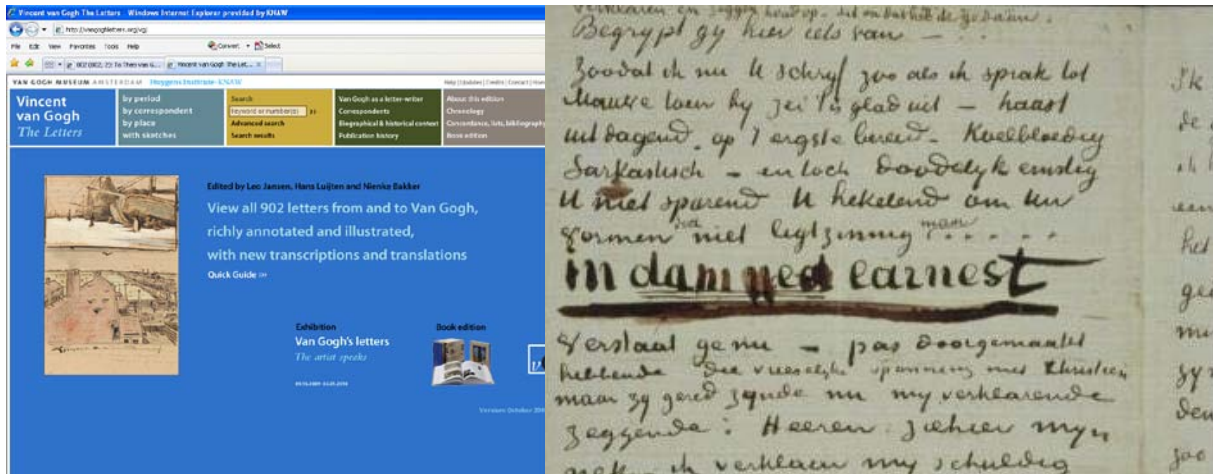 Vincent van Gogh The Letters - Windows Internet Explorer provided by KNAW
http://vangoghletters.org/vg/
File Edit View Favorites Tools Help
Convert Select
VAN GOGH MUSEUM AMSTERDAM Huygens Instituut - KNAW
Help | Updates | Credits | Contact |
Vincent
van Gogh
The Letters
by period
by correspondent
by place
with sketches
Search
keyword or number(s)
Advanced search
Search results
Van Gogh as a letter-writer
Correspondents
Biographical & historical context
Publication history
About this edition
Chronology
Concordance, lists, bibliography
Book edition
Edited by Leo Jansen, Hans Luijten and Nienke Bakker
View all 902 letters from and to Van Gogh,
richly annotated and illustrated,
with new transcriptions and translations
Quick Guide >>
Exhibition
Van Gogh's letters
The artist speaks
Book edition
Version: October
Begrypt gy hier iets van — . .
Zoodat ik nu U schryf zoo als ik sprak tot
Mauve toen hy zei is glad uit — haast
uitdagend, op 't ergste bereid — Koelbloedig
Sarkastisch — en toch doodelyk ernstig
U niet sparend U hekelend om Uw
vormen niet ligtzinnig maar . . . . .
in damned earnest
Verstaat ge nu — pas doorgemaakt
hebbende die vreeselyke spanning met Christien
maar zy gered zynde nu my verklarende
zeggende: Heeren ziehier myn
ik verklaar my schuldig
Ik
de
een
het
zoo